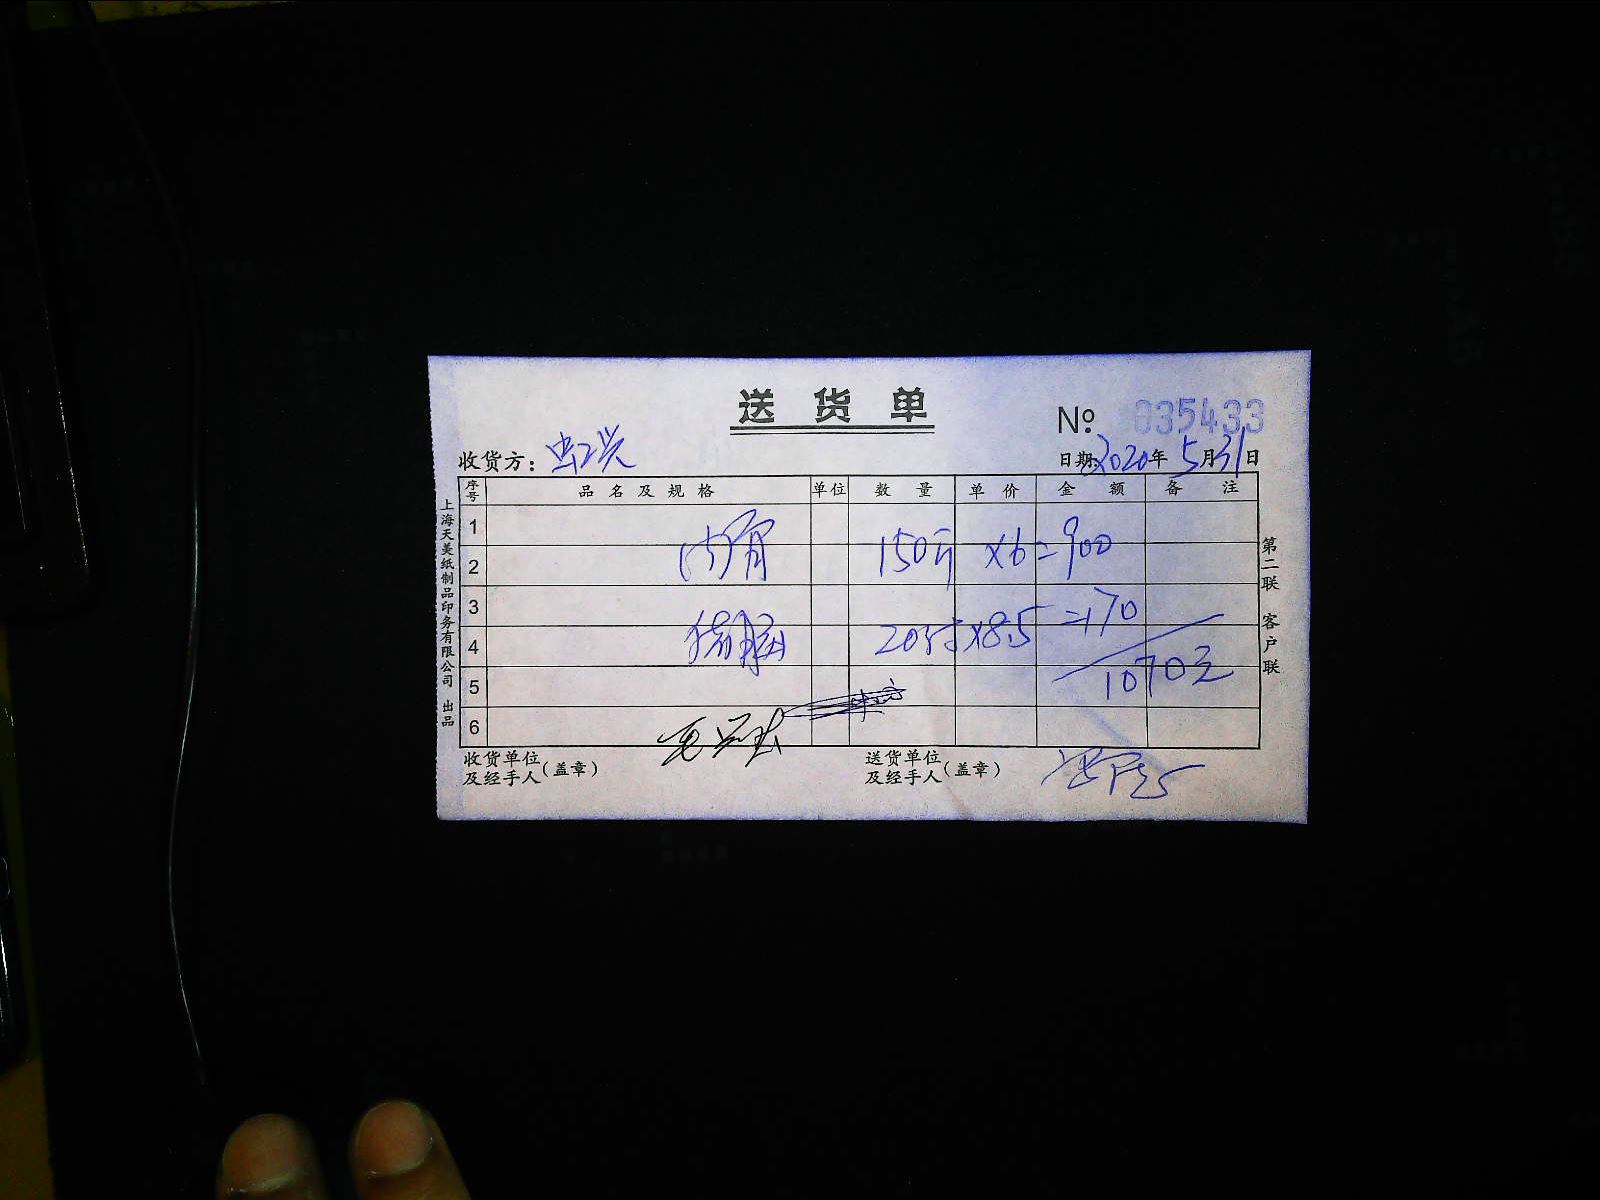 送货单
No 035433
收货方：
日期: 2020年5月31日
序号 品名及规格 单位 数量 单价 金额 备注
1
150斤 ×6=900
2
3
猪脑 20斤 ×8.5 =170
4
1070元
5
6
收货单位及经手人(盖章)
送货单位及经手人(盖章)
上海天美纸制品印务有限公司 出品
第二联 客户联